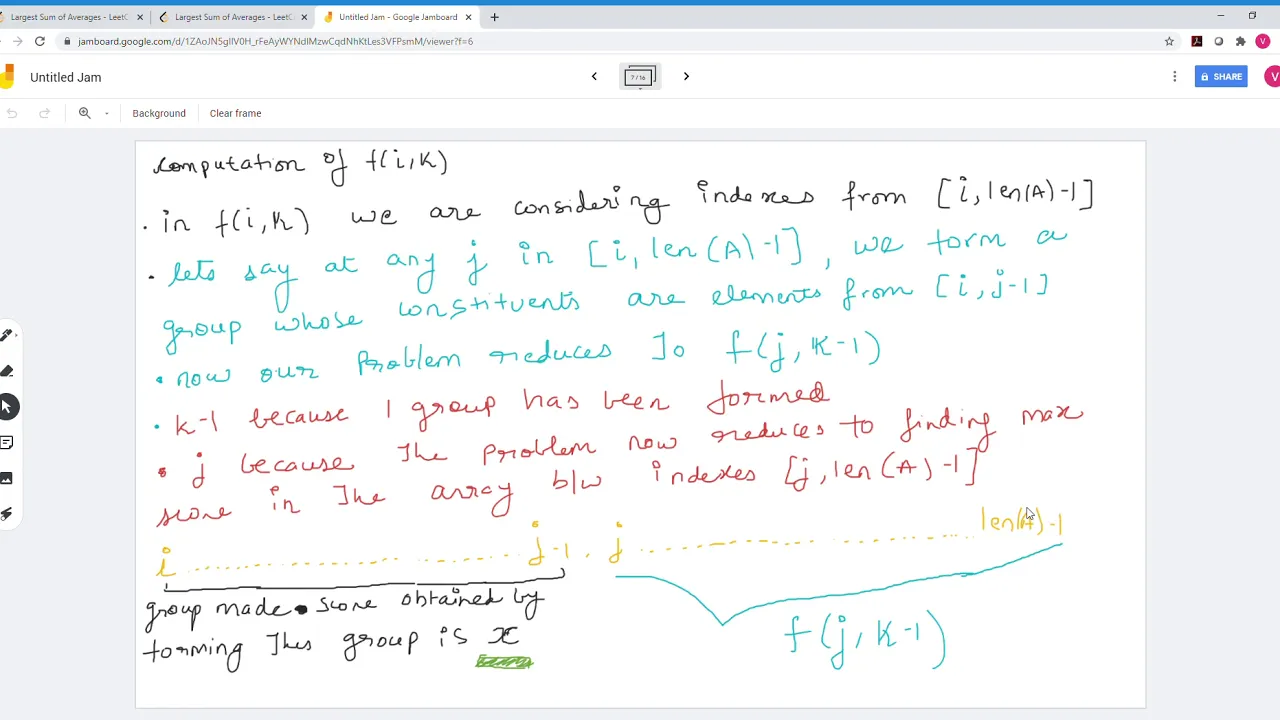 Largest Sum of Averages - LeetC
Largest Sum of Averages - LeetC
Untitled Jam - Google Jamboard
Untitled Jam
7 / 16
SHARE
V
Background
Clear frame
computation of f(i,K)
• in f(i,K) we are considering indexes from [i, len(A)-1]
• lets say at any j in [i, len(A)-1], we form a
group whose constituents are elements from [i, j-1]
• now our problem reduces To f(j, K-1)
• K-1 because 1 group has been formed
• j because The problem now reduces to finding max
score in The array b/w indexes [j, len(A)-1]
i ........ j-1, j ........ len(A)-1
group made • score obtained by
forming This group is x
f(j, K-1)